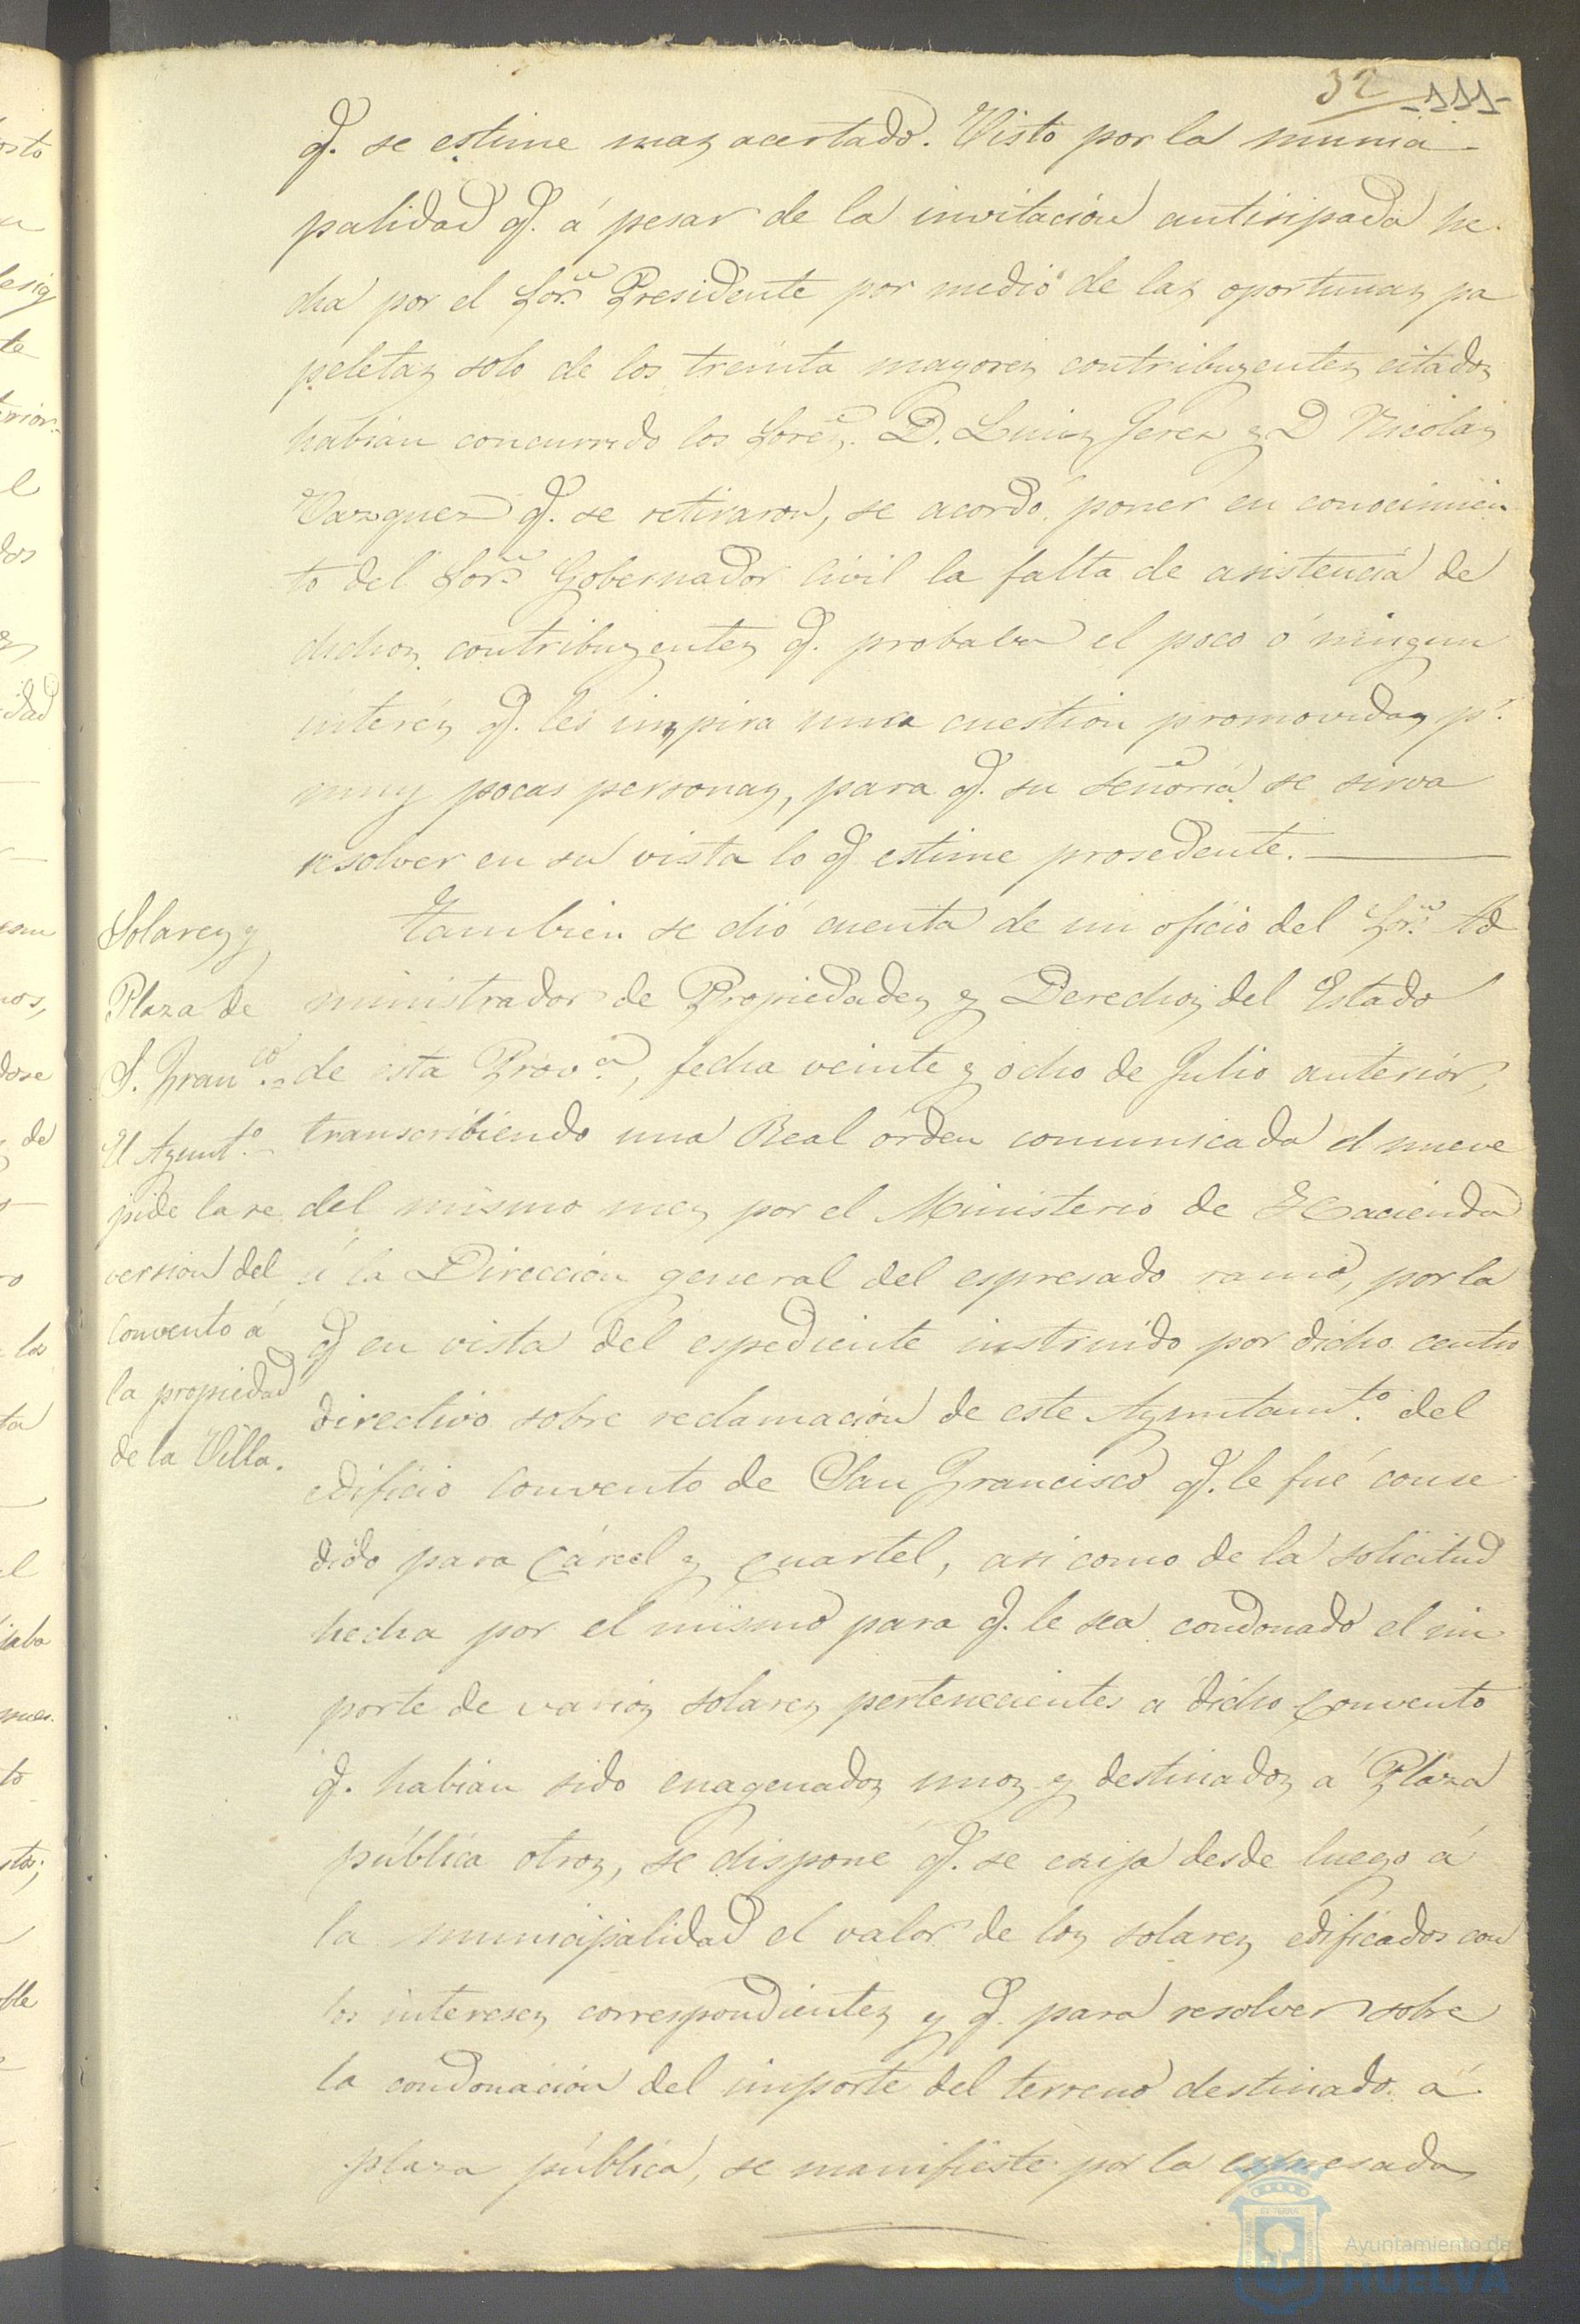 32 -111-
q. se estime mas acertado. Visto por la munici-
palidad q. á pesar de la invitacion antisipada he-
cha por el Sor. Presidente por medio de las oportunas pa
peletas solo de los treinta mayores contribuyentes citados
habian concurrido los Sores. D. Luis Jerez y D Nicolas
Vazquez q. se retiraron, se acordó poner en conocimien
to del Sor. Gobernador Civil la falta de asistencia de
dichos contribuyentes q. probaba el poco ó ningun
interés q. les inspira una cuestion promovidas pr.
muy pocas personas, para q. su Señoria se sirva
resolver en su vista lo q estime prosedente.
Solares y
Plaza de
S. Franco.
El Ayunto.
pide la re
version del
Convento á
la propiedad
de la Villa.
Tambien se dió cuenta de un oficio del Sor. Ad
ministrador de Propiedades y Derechos del Estado
de esta Prova., fecha veinte y ocho de Julio anterior,
transcribiendo una Real órden comunicada el nueve
del mismo mes por el Ministerio de Hacienda
á la Dirección general del espresado ramo, por la
q en vista del espediente instruido por dicho centro
directivo sobre reclamación de este Ayuntamto. del
edificio Convento de San Francisco q. le fué conse
dido para Cárcel y Cuartel, asi como de la solicitud
hecha por el mismo para q. le sea condonado el im
porte de varios solares pertenecientes a dicho Convento
q. habian sido enagenados unos y destinados á Plaza
pública otros, se dispone q. se exija desde luego á
la municipalidad el valor de los solares edificados con
los intereses correspondientes y q. para resolver sobre
la condonación del importe del terreno destinado á
plaza pública, se manifieste por la espresada
Ayuntamiento de
HUELVA